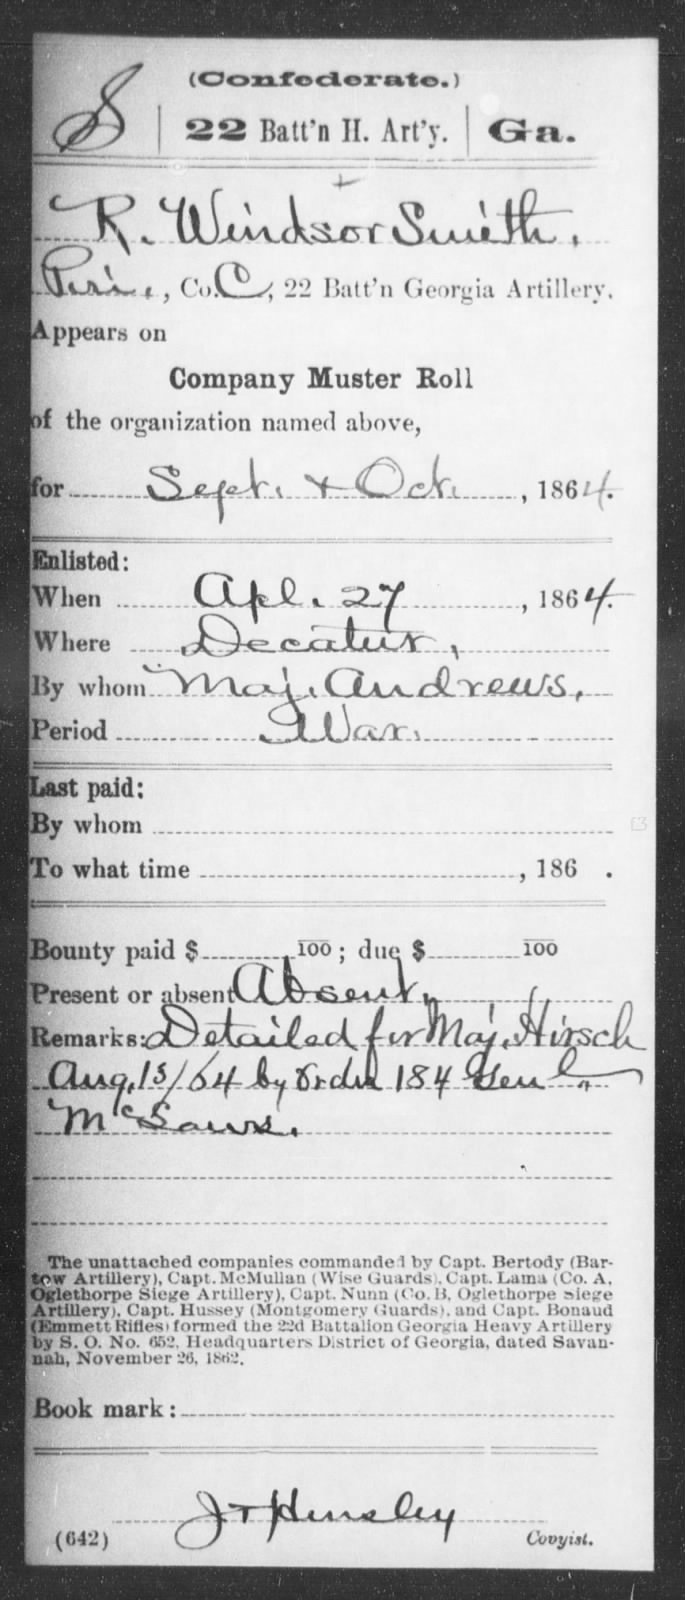 (Confederate.)
S | 22 Batt'n H. Art'y. | Ga.
R. Windsor Smith,
Pri., Co. C, 22 Batt'n Georgia Artillery.
Appears on
Company Muster Roll
of the organization named above,
for Sept. & Oct., 1864.
Enlisted:
When Apl. 27, 1864.
Where Decatur,
By whom Maj. Andrews,
Period War.
Last paid:
By whom
To what time , 186 .
Bounty paid $ 100; due $ 100
Present or absent Absent,
Remarks: Detailed for Maj. Hirsch
Aug. 13/64 by order 184 Genl
McLaws.
The unattached companies commanded by Capt. Bertody (Bar-
tow Artillery), Capt. McMullan (Wise Guards), Capt. Lama (Co. A,
Oglethorpe Siege Artillery), Capt. Nunn (Co. B, Oglethorpe Siege
Artillery), Capt. Hussey (Montgomery Guards), and Capt. Bonaud
(Emmett Rifles) formed the 22d Battalion Georgia Heavy Artillery
by S. O. No. 652, Headquarters District of Georgia, dated Savan-
nah, November 26, 1862.
Book mark:
J T Hensley
(642) Copyist.